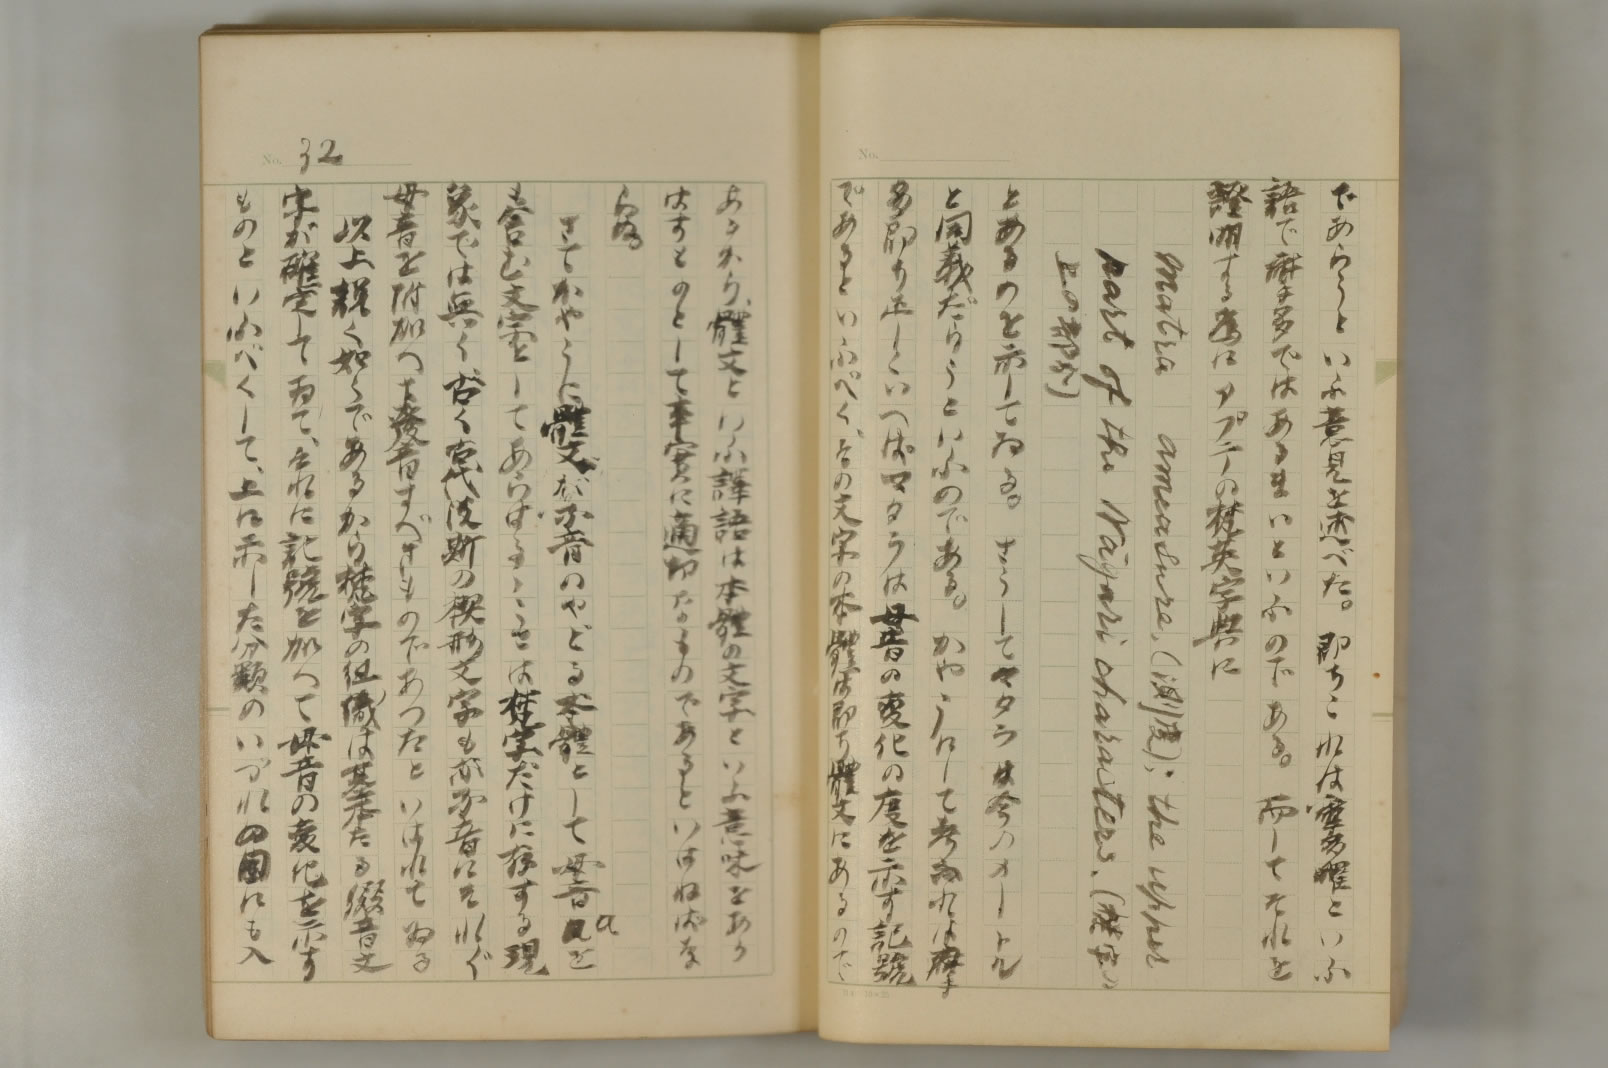 であらうといふ意見を述べた。即ちこれは摩多體といふ
語で摩多ではあるまいといふのである。而してそれを
證明する為にアプテの梵英字典に
matra ameasure, (測度); the upper
part of the Nāgari charaters. (梵字の
上の部分)
とあるのを示してゐる。さうしてマタラは今のメートル
と同義だらうといふのである。かやうにして考ふれば摩
多即ち正しくいへばマタラは母音の變化の度を示す記號
であるといふべく、その文字の本體は即ち體文にあるので
No. 32
あるから、體文といふ譯語は本體の文字といふ意味をあら
はすものとして事實に適切なものであるといはねばな
らぬ。
さてかやうに體文が子音のやどる本體として母音aを
も含む文字としてあらはすることは梵字だけに存する現
象では無く古く古代波斯の楔形文字も亦子音にそれぞれ
母音を附加へて發音すべきものであつたといはれてゐる
以上説く如くであるから梵字の組織は基本たる綴音文
字が確定して居て、それに記號を加へて母音の變化を示す
ものといふべくして、上に示した分類のいづれの圖にも入
No.